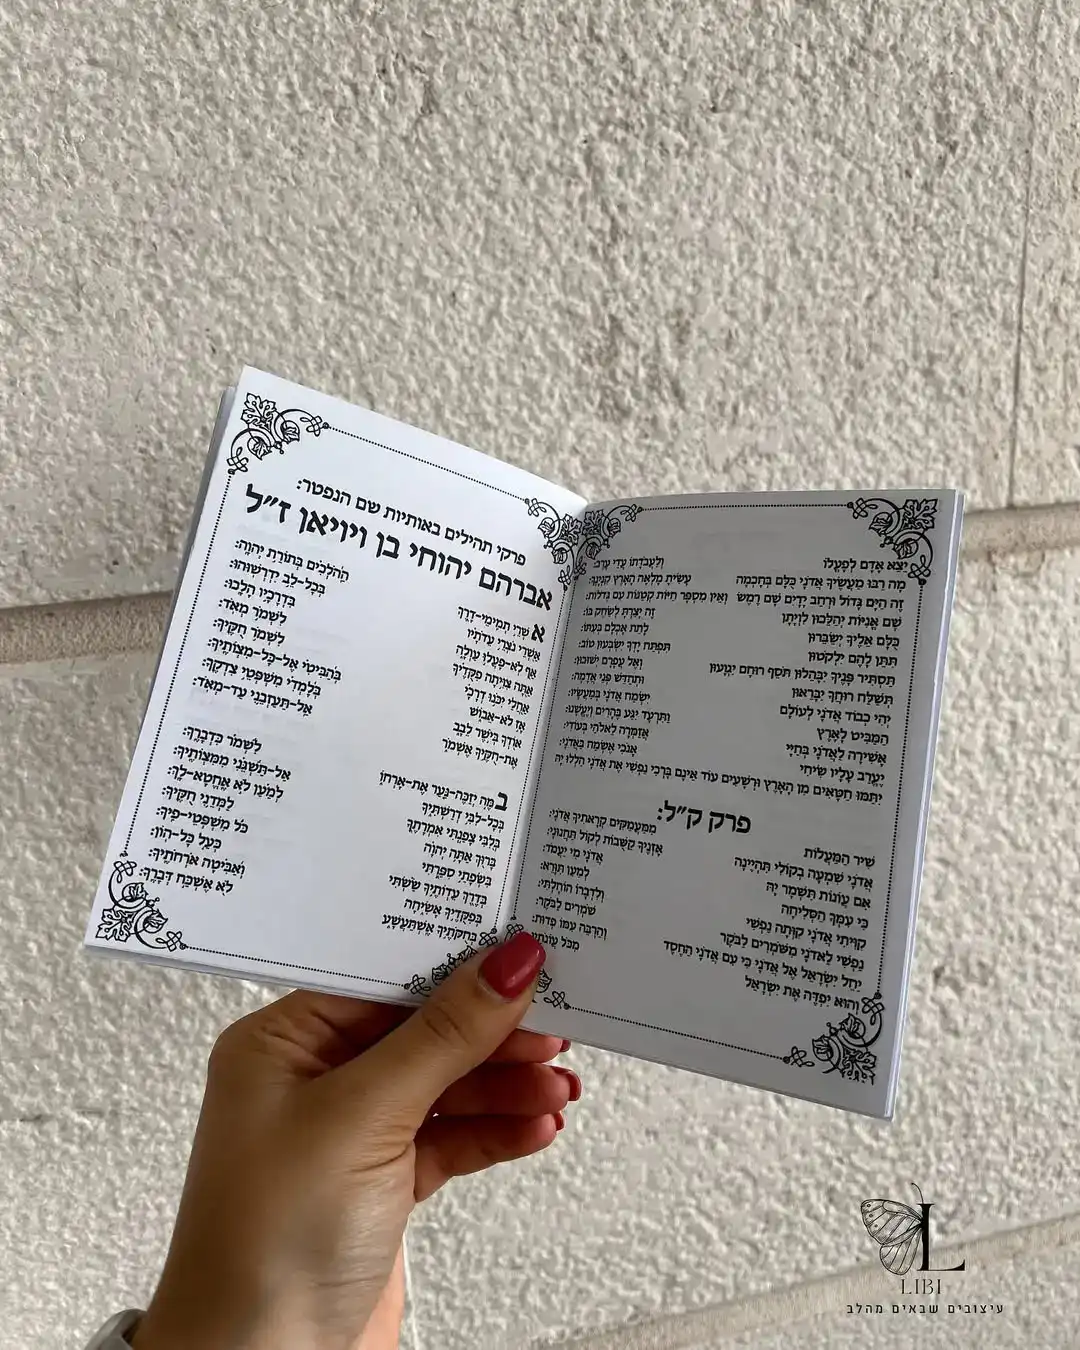 יֵצֵא אָדָם לְפָעֳלוֹ וְלַעֲבֹדָתוֹ עֲדֵי עָרֶב:
מָה רַבּוּ מַעֲשֶׂיךָ אֲדֹנָי כֻּלָּם בְּחָכְמָה עָשִׂיתָ מָלְאָה הָאָרֶץ קִנְיָנֶךָ:
זֶה הַיָּם גָּדוֹל וּרְחַב יָדָיִם שָׁם רֶמֶשׂ וְאֵין מִסְפָּר חַיּוֹת קְטַנּוֹת עִם גְּדֹלוֹת:
שָׁם אֳנִיּוֹת יְהַלֵּכוּן לִוְיָתָן זֶה יָצַרְתָּ לְשַׂחֶק בּוֹ:
כֻּלָּם אֵלֶיךָ יְשַׂבֵּרוּן לָתֵת אָכְלָם בְּעִתּוֹ:
תִּתֵּן לָהֶם יִלְקֹטוּן תִּפְתַּח יָדְךָ יִשְׂבְּעוּן טוֹב:
תַּסְתִּיר פָּנֶיךָ יִבָּהֵלוּן תֹּסֵף רוּחָם יִגְוָעוּן וְאֶל עֲפָרָם יְשׁוּבוּן:
תְּשַׁלַּח רוּחֲךָ יִבָּרֵאוּן וּתְחַדֵּשׁ פְּנֵי אֲדָמָה:
יְהִי כְבוֹד אֲדֹנָי לְעוֹלָם יִשְׂמַח אֲדֹנָי בְּמַעֲשָׂיו:
הַמַּבִּיט לָאָרֶץ וַתִּרְעָד יִגַּע בֶּהָרִים וְיֶעֱשָׁנוּ:
אָשִׁירָה לַאֲדֹנָי בְּחַיָּי אֲזַמְּרָה לֵאלֹהַי בְּעוֹדִי:
יֶעֱרַב עָלָיו שִׂיחִי אָנֹכִי אֶשְׂמַח בַּאֲדֹנָי:
יִתַּמּוּ חַטָּאִים מִן הָאָרֶץ וּרְשָׁעִים עוֹד אֵינָם בָּרְכִי נַפְשִׁי אֶת אֲדֹנָי הַלְלוּ יָהּ
פרק ק״ל:
שִׁיר הַמַּעֲלוֹת מִמַּעֲמַקִּים קְרָאתִיךָ אֲדֹנָי:
אֲדֹנָי שִׁמְעָה בְקוֹלִי תִּהְיֶינָה אָזְנֶיךָ קַשֻּׁבוֹת לְקוֹל תַּחֲנוּנָי:
אִם עֲוֹנוֹת תִּשְׁמָר יָהּ אֲדֹנָי מִי יַעֲמֹד:
כִּי עִמְּךָ הַסְּלִיחָה לְמַעַן תִּוָּרֵא:
קִוִּיתִי אֲדֹנָי קִוְּתָה נַפְשִׁי וְלִדְבָרוֹ הוֹחָלְתִּי:
נַפְשִׁי לַאדֹנָי מִשֹּׁמְרִים לַבֹּקֶר שֹׁמְרִים לַבֹּקֶר:
יַחֵל יִשְׂרָאֵל אֶל אֲדֹנָי כִּי עִם אֲדֹנָי הַחֶסֶד וְהַרְבֵּה עִמּוֹ פְדוּת:
וְהוּא יִפְדֶּה אֶת יִשְׂרָאֵל מִכֹּל עֲוֹנֹתָיו
פרקי תהילים באותיות שם הנפטר:
אברהם יהוחי בן ויויאן ז״ל
אַשְׁרֵי תְמִימֵי-דָרֶךְ הַהֹלְכִים בְּתוֹרַת יְהוָה:
אַשְׁרֵי נֹצְרֵי עֵדֹתָיו בְּכָל-לֵב יִדְרְשׁוּהוּ:
אַף לֹא-פָעֲלוּ עַוְלָה בִּדְרָכָיו הָלָכוּ:
אַתָּה צִוִּיתָה פִקֻּדֶיךָ לִשְׁמֹר מְאֹד:
אַחֲלַי יִכֹּנוּ דְרָכָי לִשְׁמֹר חֻקֶּיךָ:
אָז לֹא-אֵבוֹשׁ בְּהַבִּיטִי אֶל-כָּל-מִצְוֹתֶיךָ:
אוֹדְךָ בְּיֹשֶׁר לֵבָב בְּלָמְדִי מִשְׁפְּטֵי צִדְקֶךָ:
אֶת-חֻקֶּיךָ אֶשְׁמֹר אַל-תַּעַזְבֵנִי עַד-מְאֹד:
בַּמֶּה יְזַכֶּה-נַּעַר אֶת-אָרְחוֹ לִשְׁמֹר כִּדְבָרֶךָ:
בְּכָל-לִבִּי דְרַשְׁתִּיךָ אַל-תַּשְׁגֵּנִי מִמִּצְוֹתֶיךָ:
בְּלִבִּי צָפַנְתִּי אִמְרָתֶךָ לְמַעַן לֹא אֶחֱטָא-לָךְ:
בָּרוּךְ אַתָּה יְהוָה לַמְּדֵנִי חֻקֶּיךָ:
בִּשְׂפָתַי סִפַּרְתִּי כֹּל מִשְׁפְּטֵי-פִיךָ:
בְּדֶרֶךְ עֵדְוֹתֶיךָ שַׂשְׂתִּי כְּעַל כָּל-הוֹן:
בְּפִקֻּדֶיךָ אָשִׂיחָה וְאַבִּיטָה אֹרְחֹתֶיךָ:
בְּחֻקֹּתֶיךָ אֶשְׁתַּעֲשָׁע לֹא אֶשְׁכַּח דְּבָרֶךָ:
L
LIBI
עיצובים שבאים מהלב